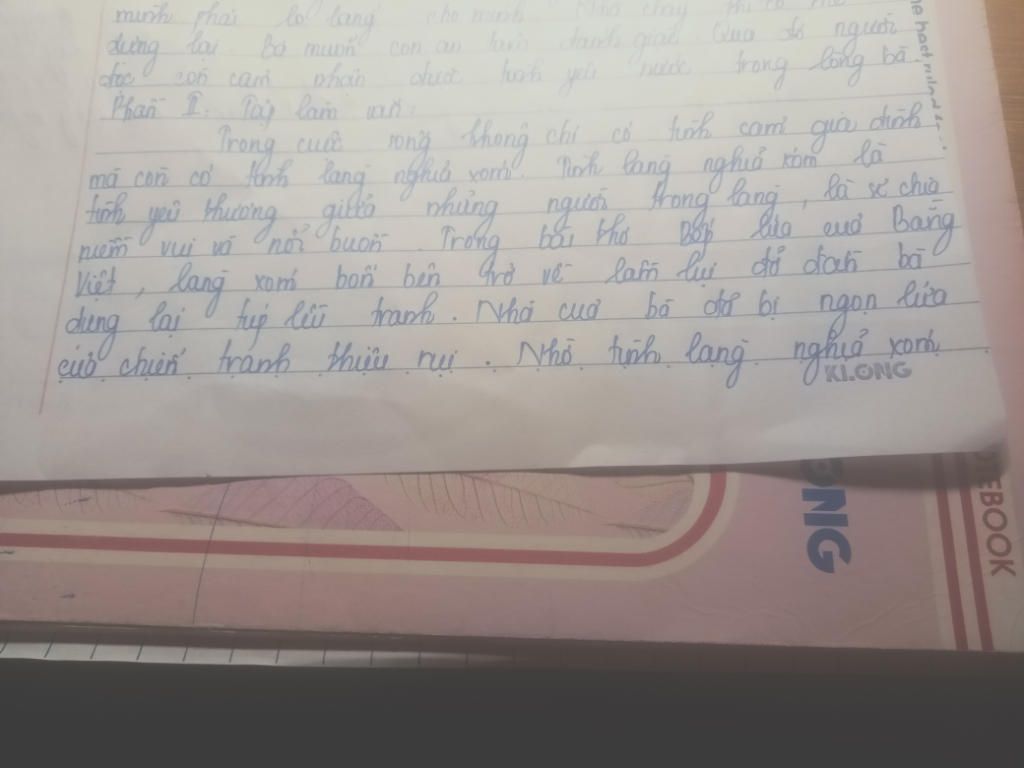 mình phải lo lắng cho mình. Nhà cháy thì có thể
dựng lại. Bà muốn con an tâm đánh giặc. Qua đó người
đọc còn cảm nhận được tình yêu nước trong lòng bà.
Phần II. Tập làm văn.
Trong cuộc sống không chỉ có tình cảm gia đình
mà còn có tình làng nghĩa xóm. Tình làng nghĩa xóm là
tình yêu thương giữa những người trong làng, là sẻ chia
niềm vui và nỗi buồn. Trong bài thơ Bếp lửa của Bằng
Việt, làng xóm bốn bên trở về lầm lụi đỡ đần bà
dựng lại túp lều tranh. Nhà của bà đã bị ngọn lửa
của chiến tranh thiêu rụi. Nhờ tình làng nghĩa xóm
KLONG
ONG
NOTEBOOK